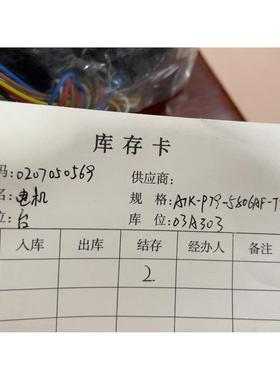 库存卡
码:0207050569
供应商:
名:电机
规 格:A7K-P79-5806AF-T
位:台
库 位:03A303
入库 出库 结存 经办人 备注
2